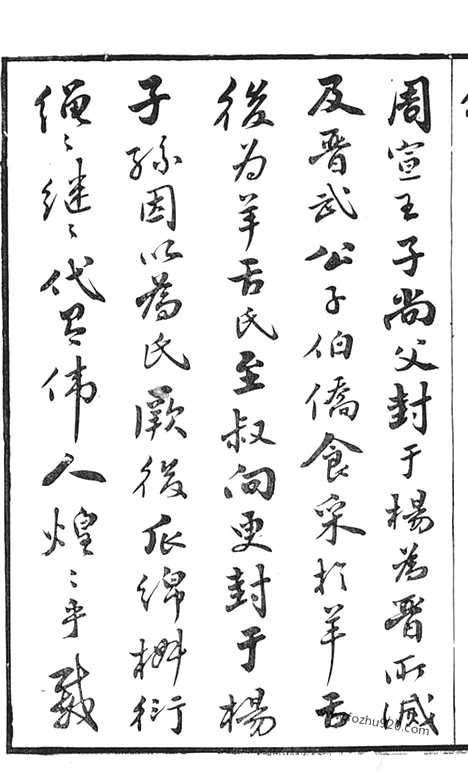 周宣王子尚父封于楊為晉所滅
及晉武公子伯僑食采於羊舌
後為羊舌氏至叔向更封于楊
子孫因以為氏厥後瓜綿椒衍
繩〻継〻代有偉人煌〻乎載
fozhu920.com